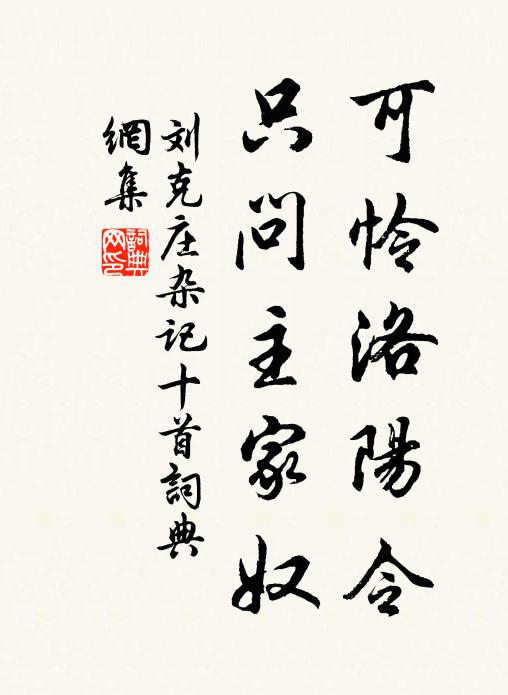 可怜洛陽令
只問主家奴
刘克庄杂记十首詞典
網集
詞典
网印